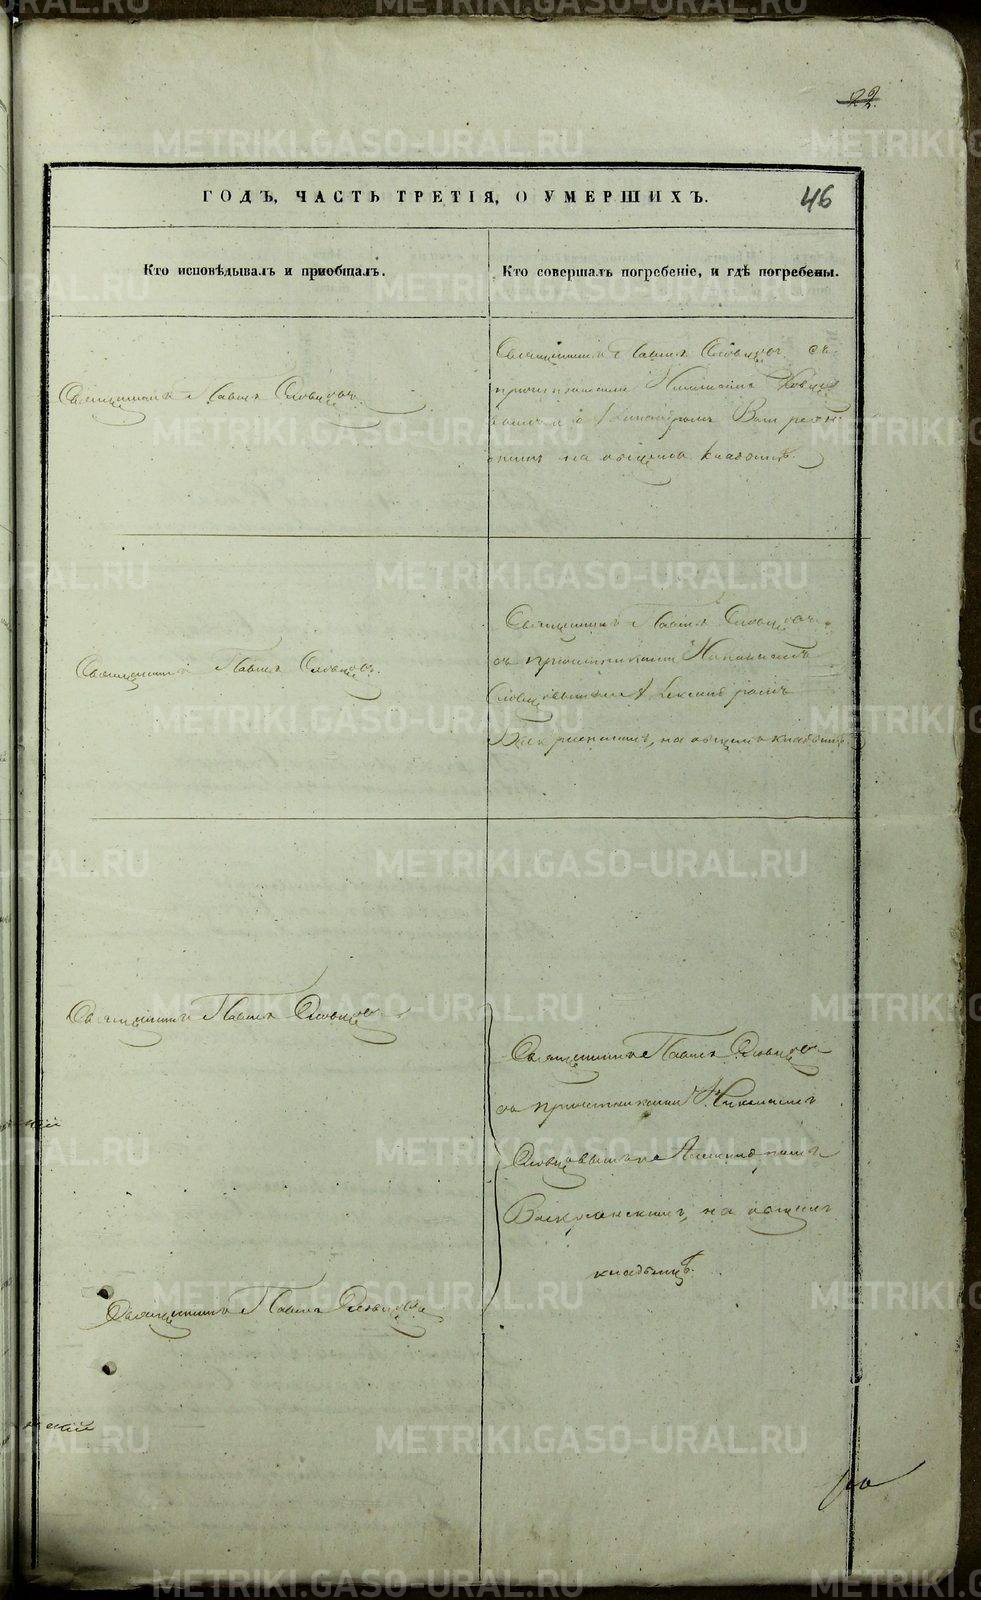 22.
ГОДЪ, ЧАСТЬ ТРЕТІЯ, О УМЕРШИХЪ.
46
Кто исповѣдывалъ и пріобщалъ.
Кто совершалъ погребеніе, и гдѣ погребены.
Священникъ Павелъ Словцовъ.
Священникъ Павелъ Словцовъ съ
причетниками Николаемъ Словцо
вымъ и Александромъ Воскресен
скимъ на общемъ кладбищѣ.
Священникъ Павелъ Словцовъ.
Священникъ Павелъ Словцовъ
съ причетниками Николаемъ
Словцовымъ и Александромъ
Воскресенскимъ, на общемъ кладбищѣ.
Священникъ Павелъ Словцовъ
Священникъ Павелъ Словцовъ
съ причетниками Николаемъ
Словцовымъ и Александромъ
Воскресенскимъ, на общемъ
кладбищѣ.
Священникъ Павелъ Словцовъ
METRIKI.GASO-URAL.RU